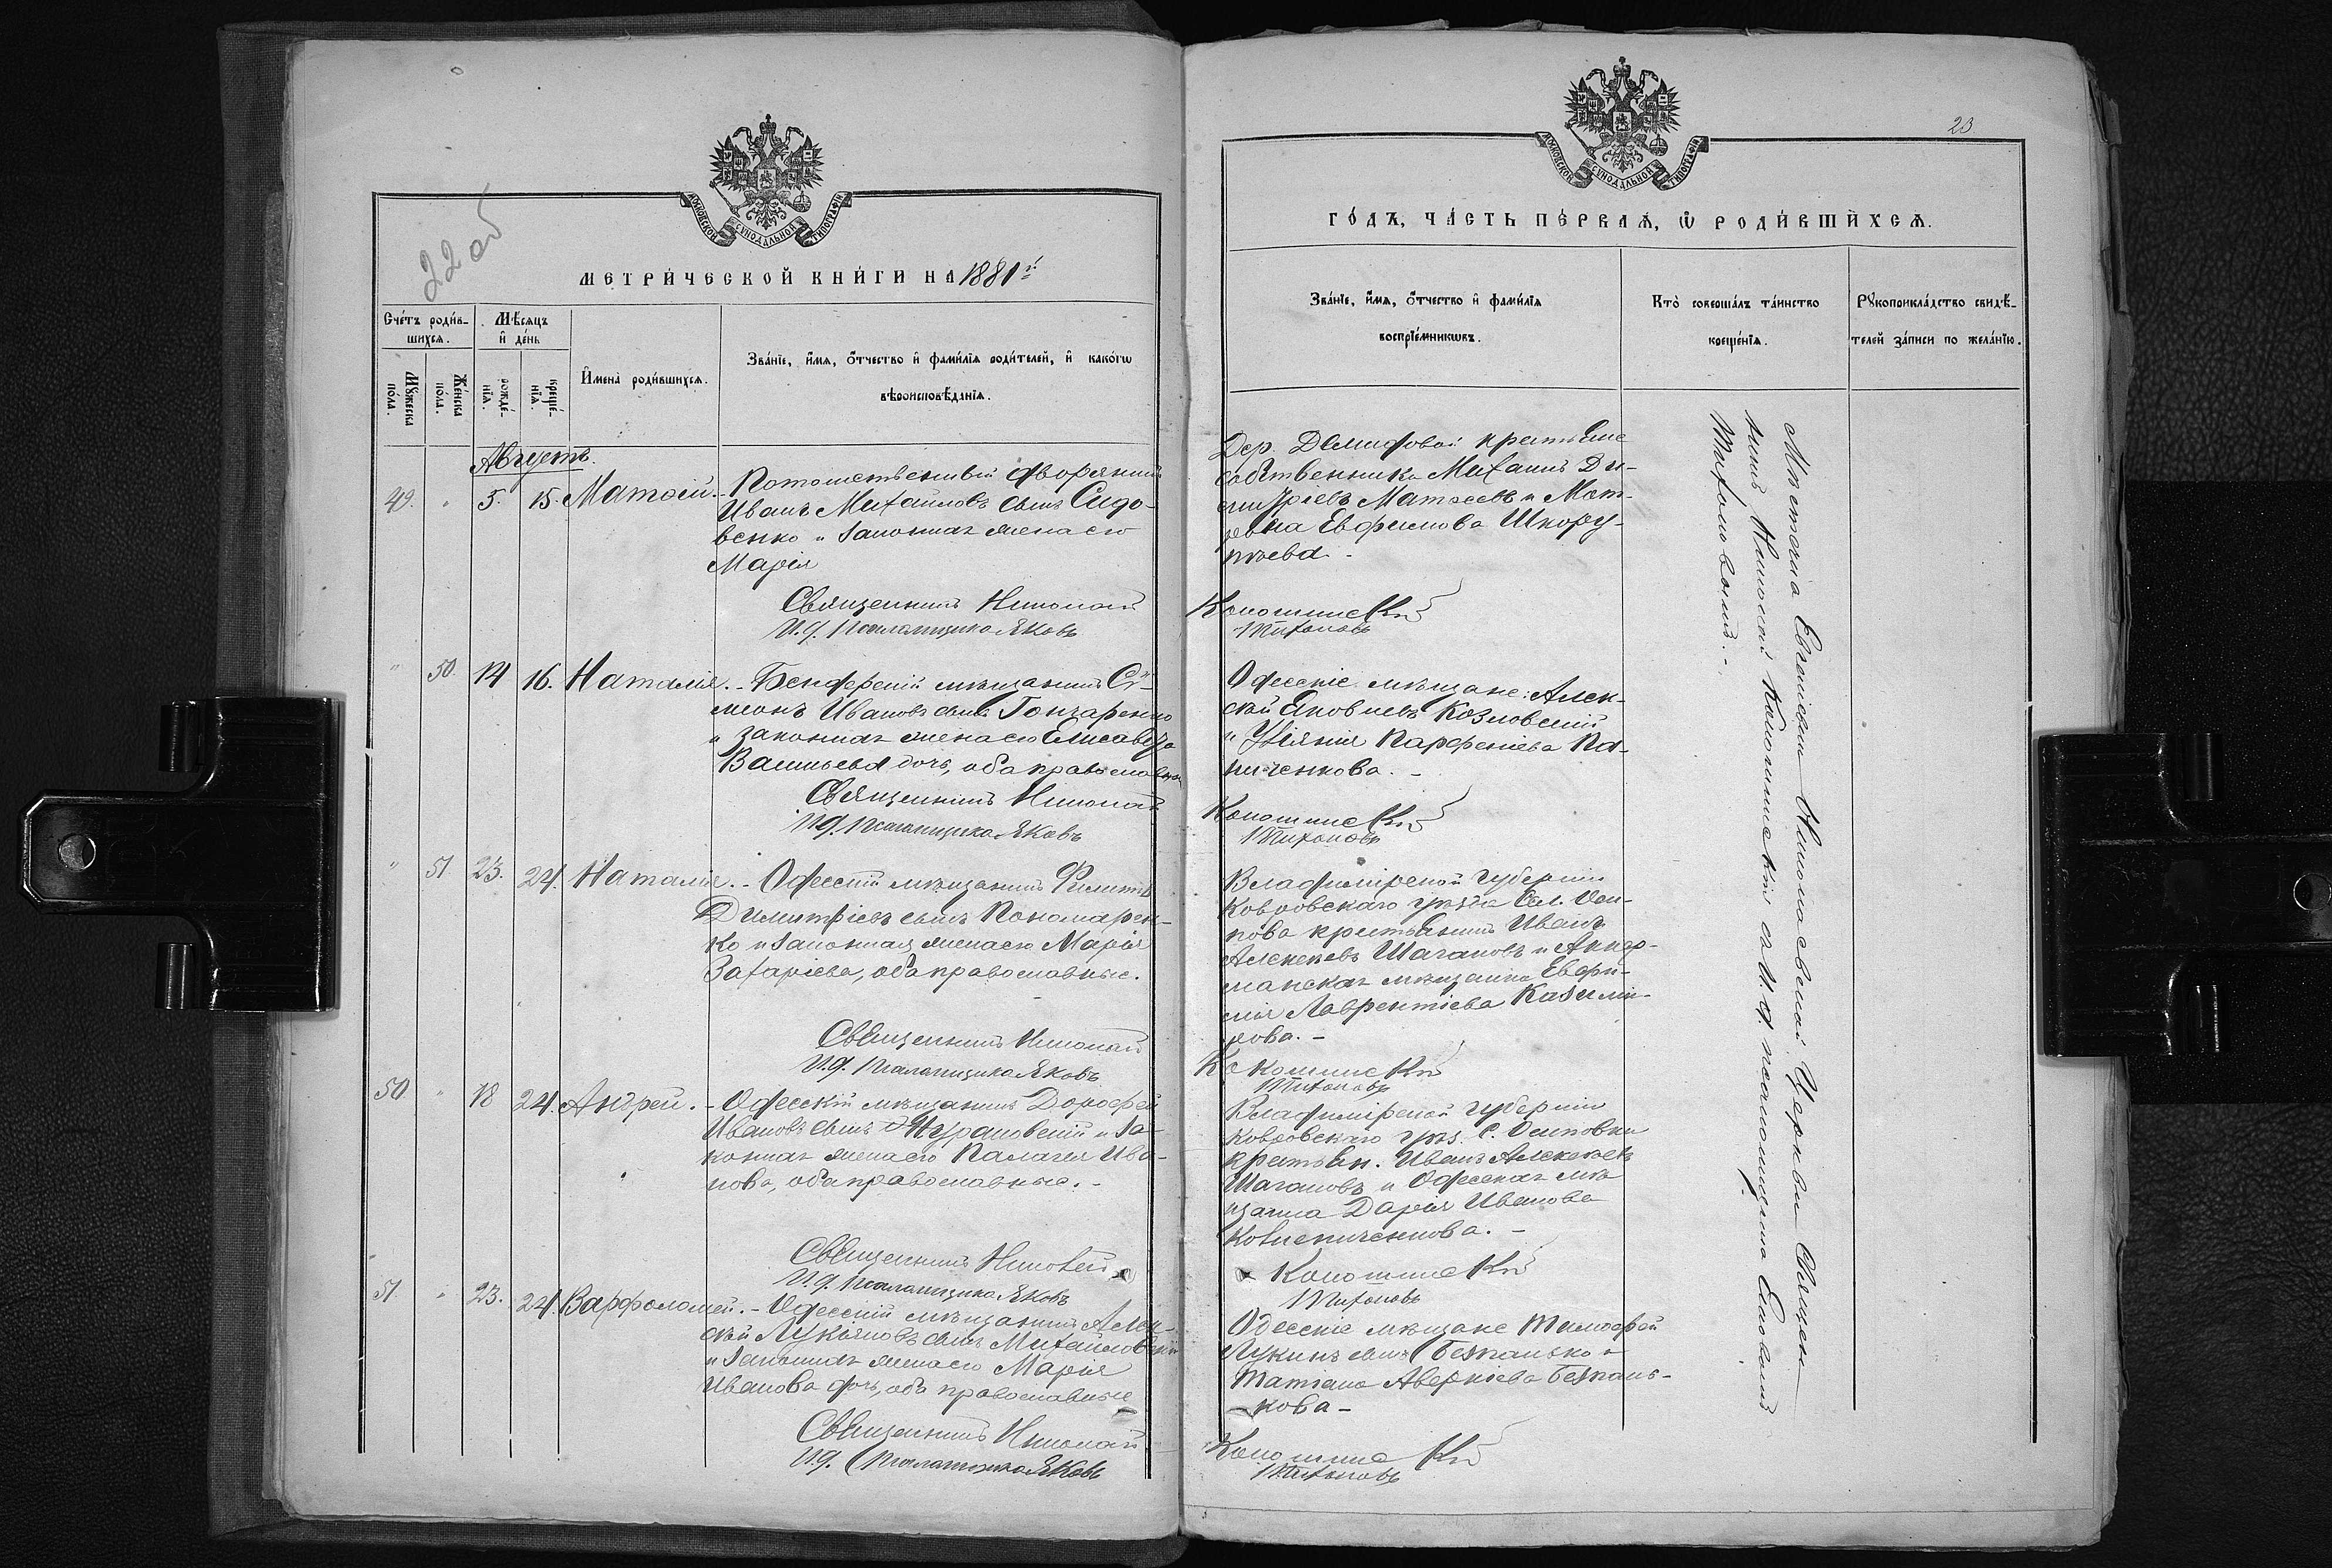 22 об
МОСКОВСКОЙ СѴНОДАЛЬНОЙ ТИПОГРАФІИ
МЕТРИ́ЧЕСКОЙ КНИ́ГИ НА 1881 й
Сче́тъ роди́в-
шихся.
Мѣ́сяцъ
и҆ де́нь
Му́жеска
по́ла.
Же́нска
по́ла.
рожде́-
нїя.
креще́-
нїя.
И҆мена̀ роди́вшихся.
Зва́нїе, и҆́мя, ѻ҆́тчество и҆ фами́лїя роди́телей, и҆ како́гѡ
вѣроисповѣ́данїя.
Августъ.
49. " 5. 15. Матѳій. - Потомственный дворянинъ
Иванъ Михаиловъ сынъ Сидо-
венко и законная жена его
Марія
Священникъ Николай
И.д. Псаломщика Яковъ
" 50. 14 16. Наталія. - Бендерскій мѣщанинъ Си-
меонъ Ивановъ сынъ Гончаренко
и законная жена его Елисавета
Васильева дочь, оба православные
Священникъ Николай
И.д. Псаломщика Яковъ
" 51. 23. 24. Наталія. - Одесскій мѣщанинъ Филиппъ
Димитріевъ сынъ Пономарен-
ко и законная жена его Марія
Захаріева, оба православные.
Священникъ Николай
И.д. Псаломщика Яковъ
50. " 18 24. Андрей. - Одесскій мѣщанинъ Дороѳей
Ивановъ сынъ и за-
конная жена его Пелагея Ива-
нова, оба православные. -
Священникъ Николай
И.д. Псаломщика Яковъ
51. " 23. 24. Варфоломей. - Одесскій мѣщанинъ Алек-
сѣй Лукіяновъ сынъ Михайловскій
и законная жена его Марія
Иванова дочь, оба православные
Священникъ Николай
И.д. Псаломщика Яковъ
23
МОСКОВСКОЙ СѴНОДАЛЬНОЙ ТИПОГРАФІИ
ГО́ДЪ, ЧА́СТЬ ПЕ́РВАЯ, Ѡ҆ РОДИ́ВШИХСЯ.
Зва́нїе, и҆́мя, ѻ҆́тчество и҆ фами́лїя
воспрїе́мникѡвъ.
Кто̀ соверша́лъ та́инство
креще́нїя.
Рꙋкоприкла́дство свидѣ́-
телей за́писи по жела́нїю.
Дер. Демидовой крестьяне
собственники Михаилъ Ди-
митріевъ Матѳеевъ и Мат-
рена Евфимова Шкору-
пѣева -
Колошинскій
Тихоновъ
Одесскіе мѣщане: Алек-
сѣй Яковлевъ Козловскій
и Уліянія Парфеніева Па-
ниченкова. -
Колошинскій
Тихоновъ
Владимірской губерніи
Ковровскаго уѣзда Сел. Оси-
пова крестьянинъ Иванъ
Алексѣевъ Шагановъ и Аккер-
манская мѣщанка Евфи-
мія Лаврентіева Казимі-
рова. -
Колошинскій
Тихоновъ
Владимірской губерніи
Ковровскаго уѣз. С. Осиповки
крестьян. Иванъ Алексѣевъ
Шагановъ и Одесская мѣ-
щанка Дарія Иванова
-
Колошинскій
Тихоновъ
Одесскіе мѣщане Тимоѳей
Лукинъ сынъ Безпалько и
Татіана Аверкіева Безпаль-
кова -
Колошинскій
Тихоновъ
Мѣстечка Николаевской Церкви Священ-
никъ Николай Колошинскій съ И. д. псаломщика Яковомъ
Тихоновымъ. -